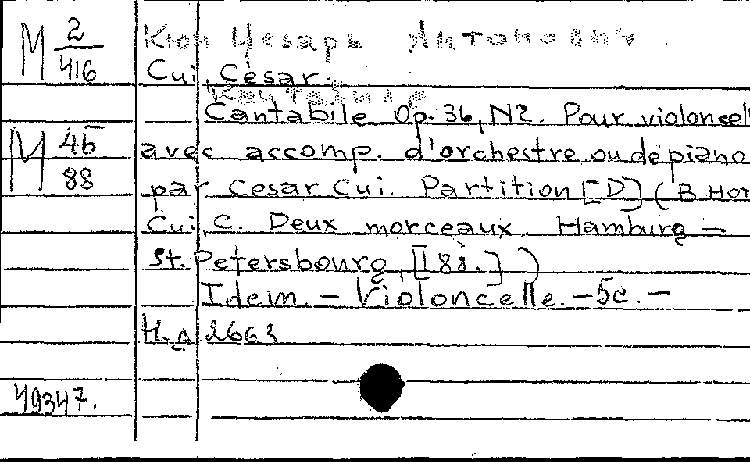 M 2/416 Кюи Цезарь Антонович
Cui, Cesar.
Cantabile Op. 36, N2. Pour violoncel
M 45/88 avec accomp. d'orchestre ou de piano
par Cesar Cui. Partition [D] (В нот
Cui, C. Deux morceaux. Hamburg –
St. Petersbourg, [188.])
Idem. – Violoncelle. – 5c. –
Н.д 2663
49347.